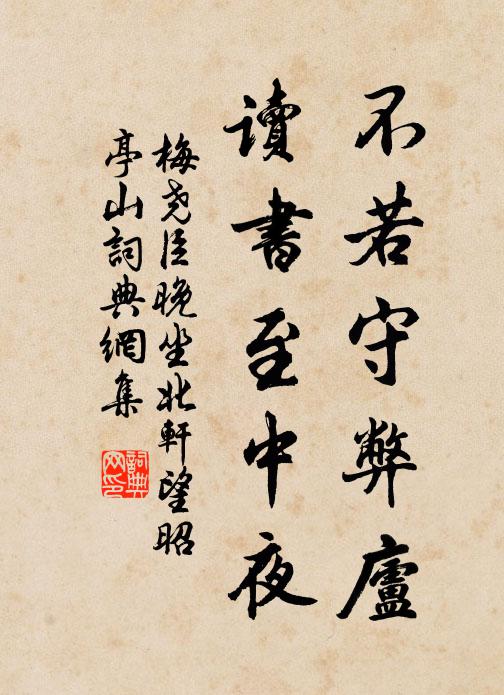 不若守弊廬
讀書至中夜
梅堯臣晚坐北軒望昭
亭山詞典網集
詞典网印